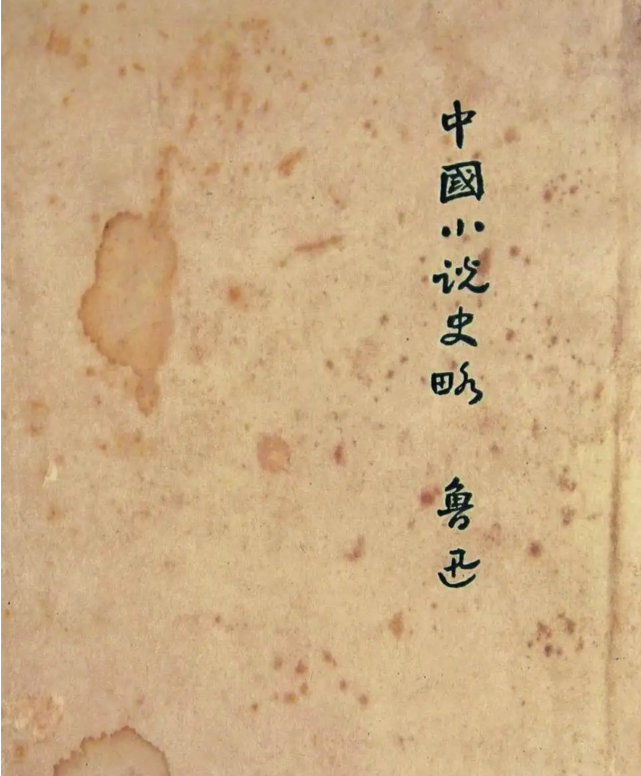 中國小说史略 魯迅